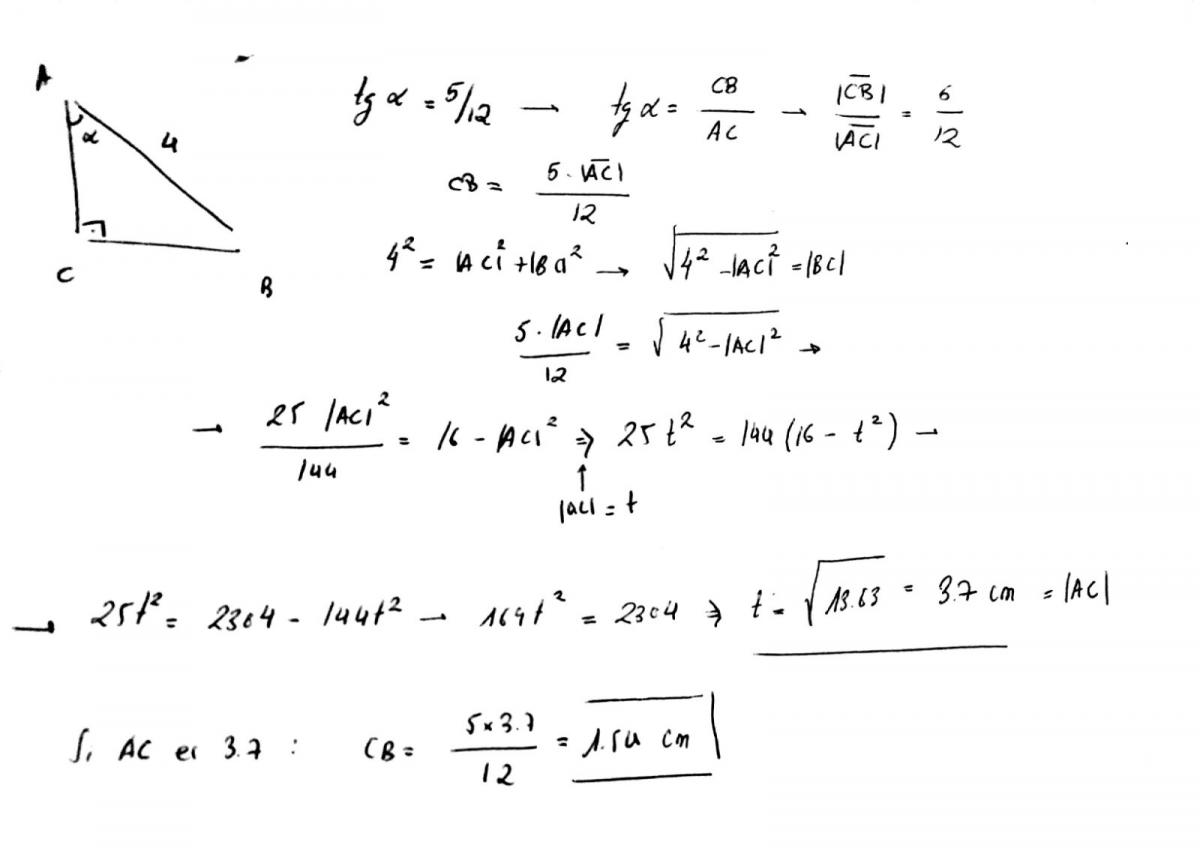 A
α
4
C
B
tg α = 5/12 → tg α = CB / AC → |CB| / |AC| = 5 / 12
CB = 5 · |AC| / 12
4² = |AC|² + |BC|² → √(4² - |AC|²) = |BC|
5 · |AC| / 12 = √(4² - |AC|²) →
→ 25 |AC|² / 144 = 16 - |AC|² ⇒ 25 t² = 144 (16 - t²) →
↑
|AC| = t
→ 25t² = 2304 - 144t² → 169t² = 2304 ⇒ t = √13.63 = 3.7 cm = |AC|
Si AC es 3.7 : CB = 5x3.7 / 12 = 1.54 cm